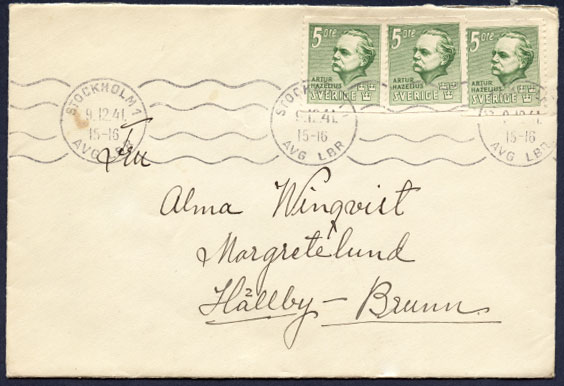 5 öre 5 öre 5 öre
ARTUR HAZELIUS ARTUR HAZELIUS ARTUR HAZELIUS
SVERIGE SVERIGE SVERIGE
STOCKHOLM 1
9.12.41
15-16
AVG LBR
STOCKHOLM 1
9.12.41
15-16
AVG LBR
9.12.41
15-16
AVG LBR
Fru
Alma Winqvist
Margretelund
Hällby - Brunn